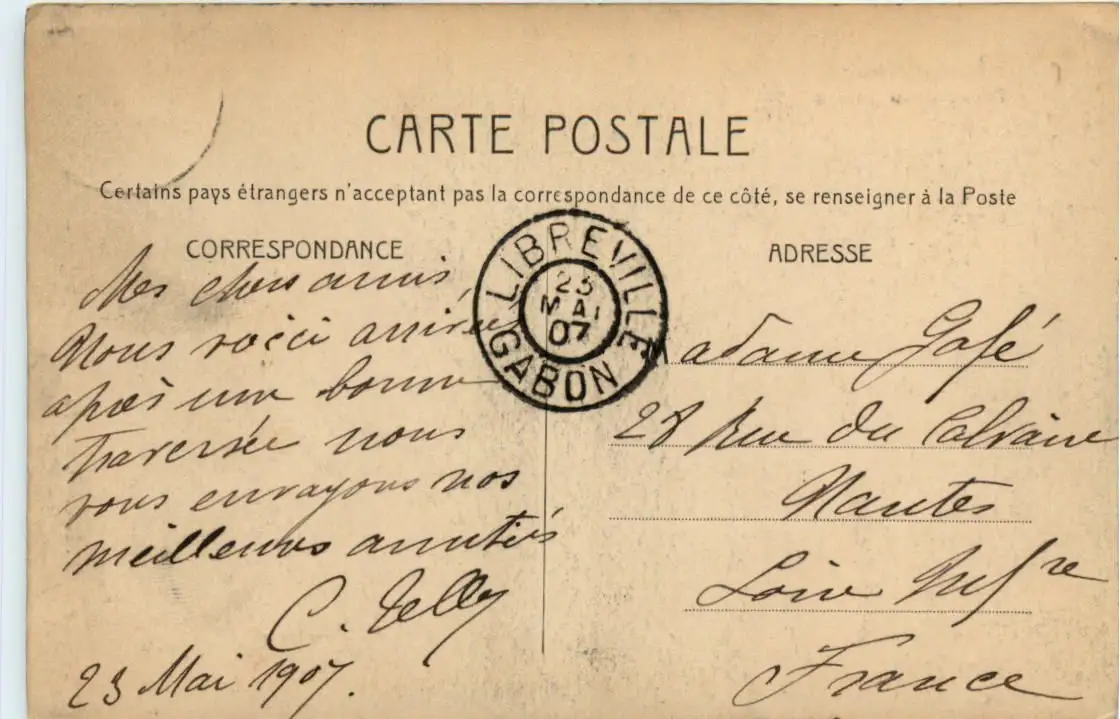 CARTE POSTALE
Certains pays étrangers n'acceptant pas la correspondance de ce côté, se renseigner à la Poste
CORRESPONDANCE
Mes chers amis,
Nous voici arrivés
après une bonne
Traversée nous
vous envoyons nos
meilleures amitiés
C. Telly
23 Mai 1907.
LIBREVILLE
23
MAI
07
GABON
ADRESSE
Madame Gafé
28 Rue du Calvaire
Nantes
Loire Infre
France